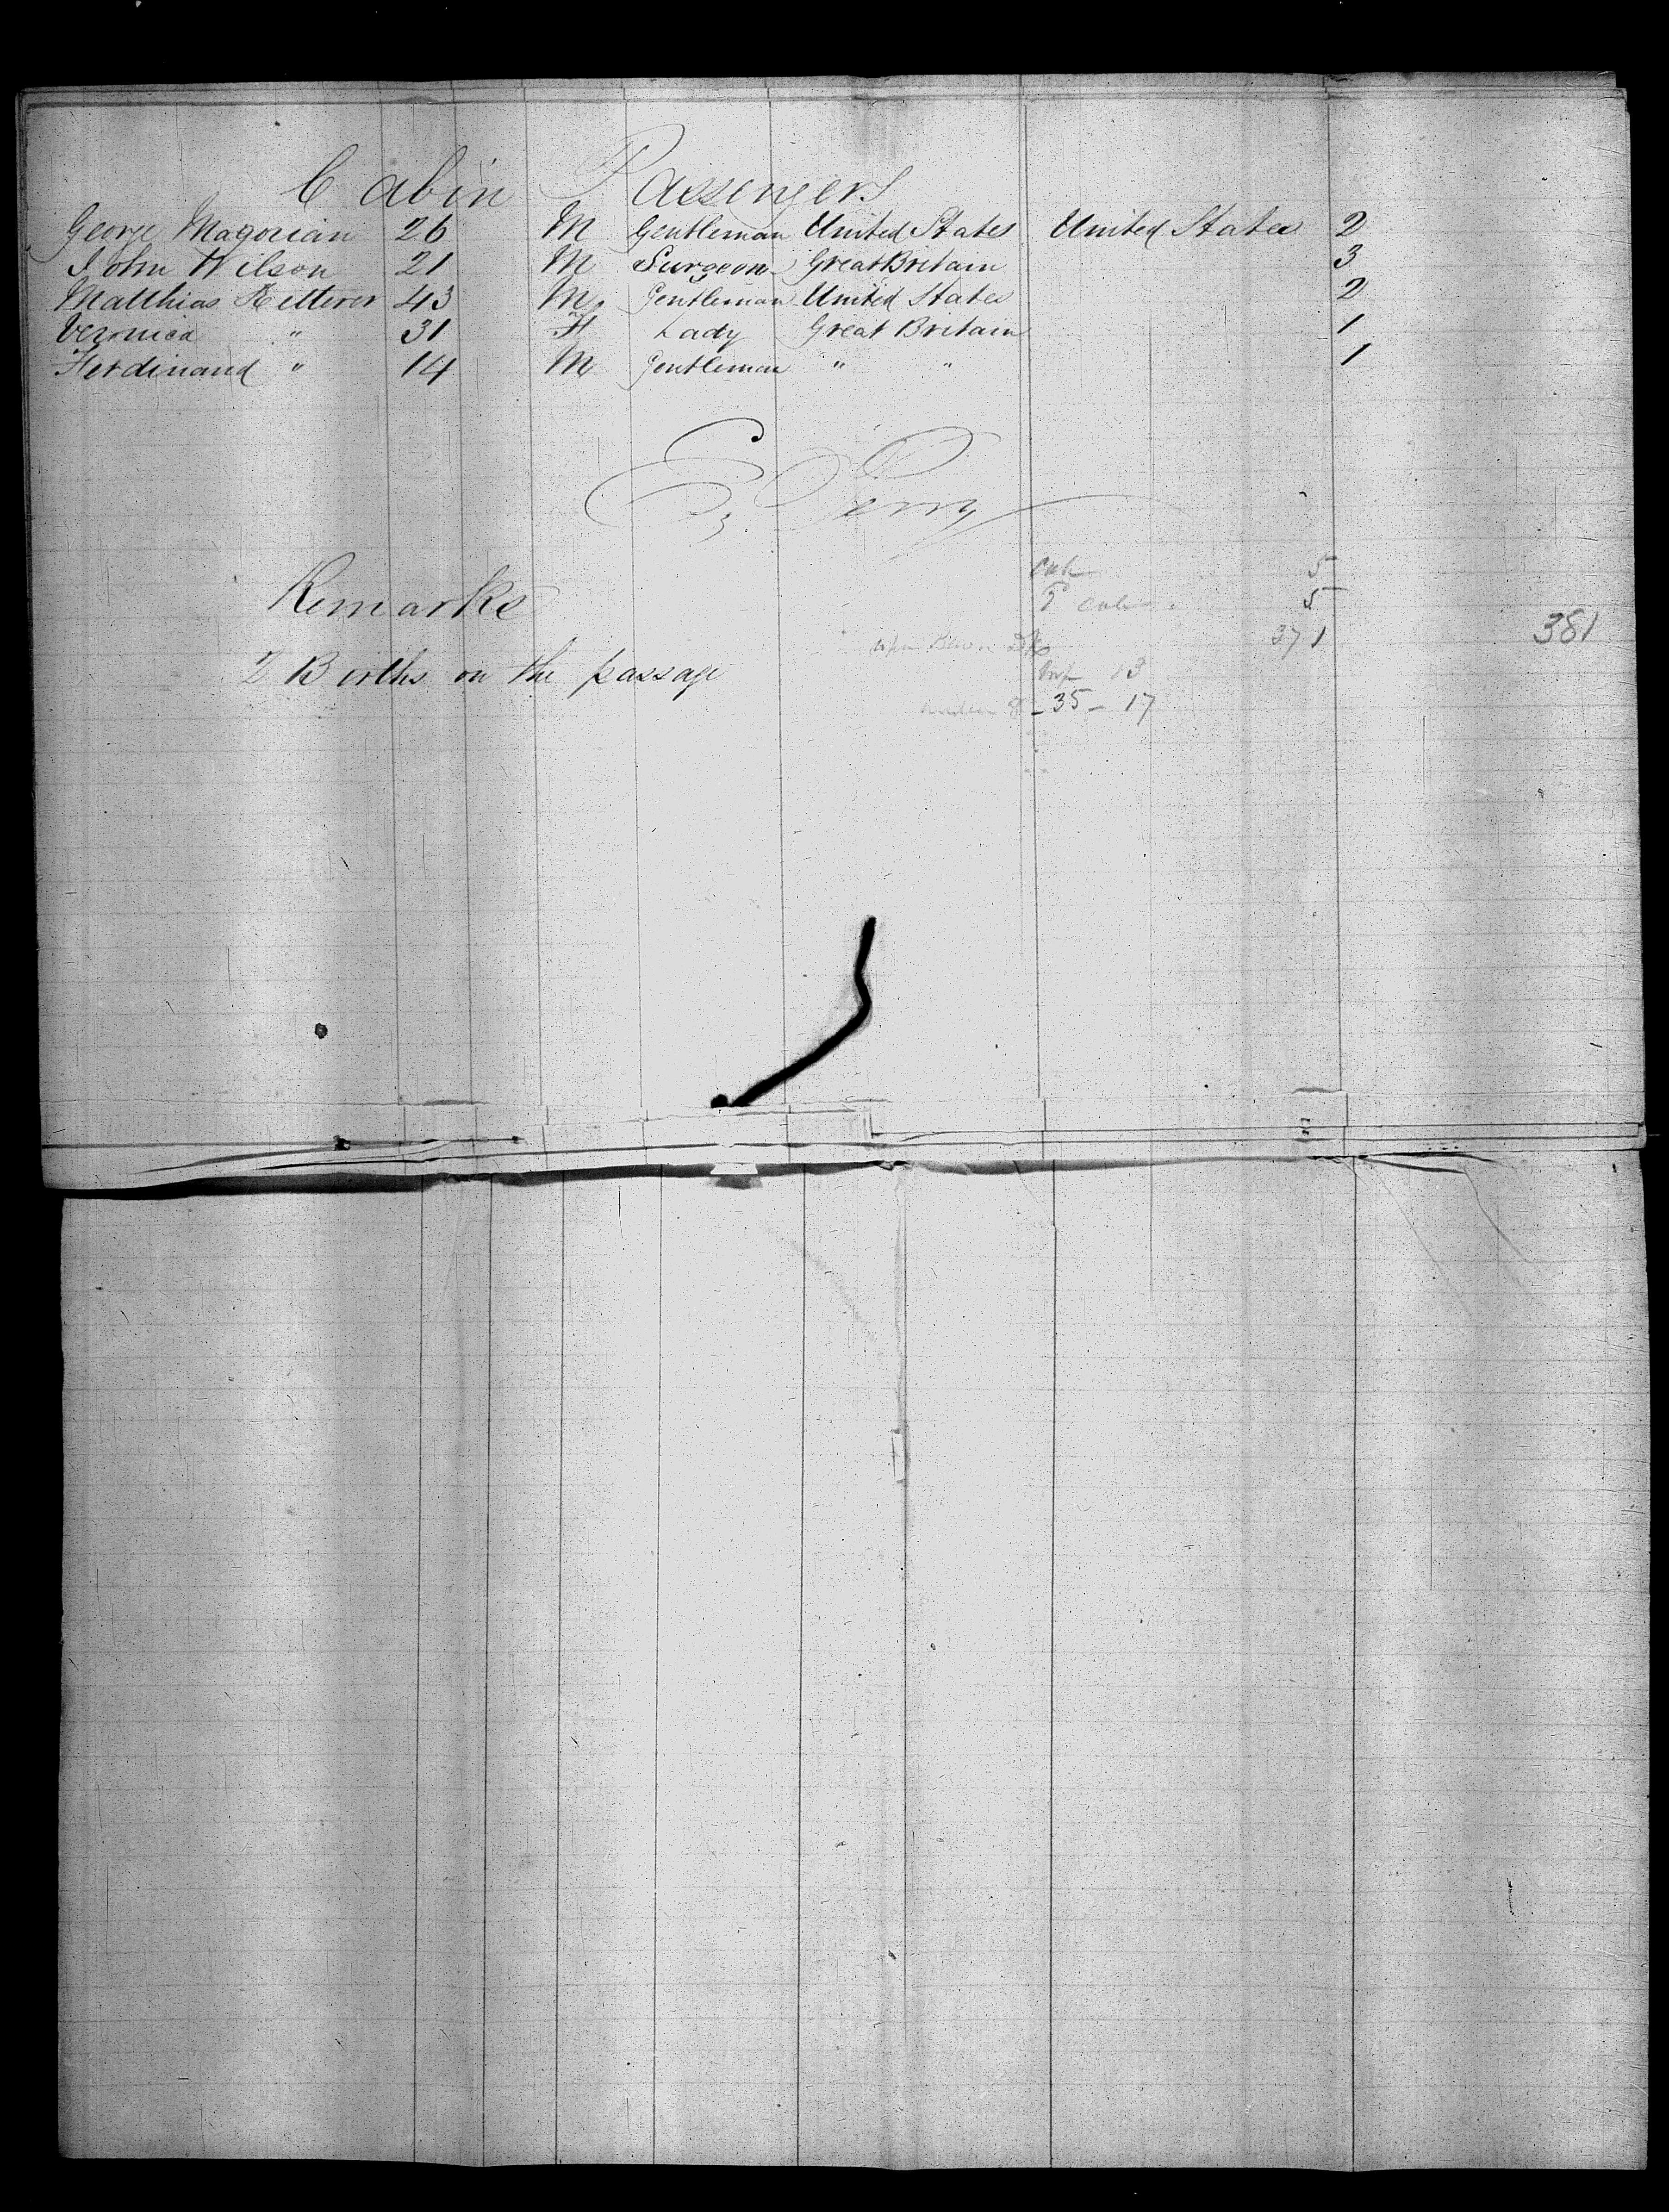 Cabin Passengers
George Magorian 26 M Gentleman United States United States 2
John Wilson 21 M Surgeon Great Britain 3
Matthias Ketterer 43 M. Gentleman United States 2
Veronica " 31 F Lady Great Britain 1
Ferdinand " 14 M Gentleman " " 1
Perry
5
Remarks 5
371 381
2 Births on the passage
13
8 - 35 - 17